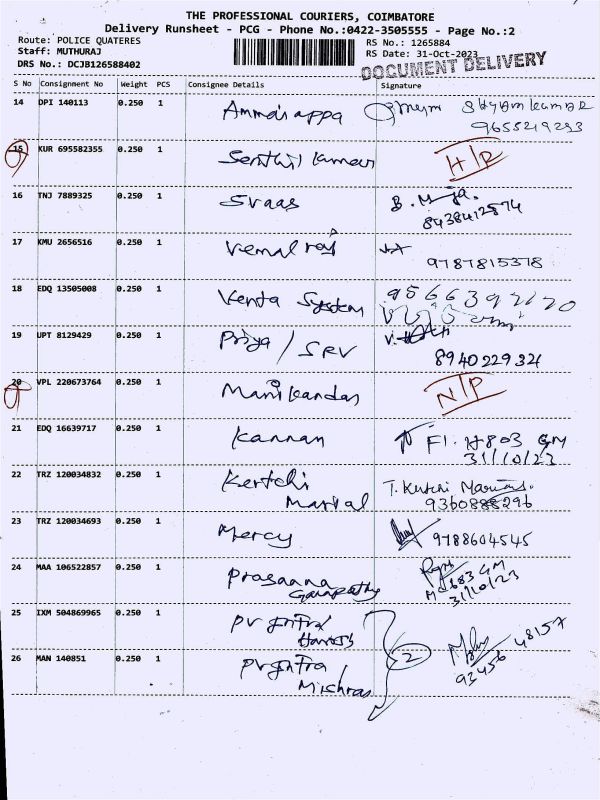 THE PROFESSIONAL COURIERS, COIMBATORE
Delivery Runsheet - PCG - Phone No.:0422-3505555 - Page No.:2
Route: POLICE QUATERES RS No.: 1265884
Staff: MUTHURAJ RS Date: 31-Oct-2023
DRS No.: DCJB126588402 DOCUMENT DELIVERY
S No Consignment No Weight PCS Consignee Details Signature
14 DPI 140113 0.250 1 Ammaiappa
9655219293
15 KUR 695582355 0.250 1 Senthil kumar
16 TNJ 7889325 0.250 1 Svaas
8438412574
17 KMU 2656516 0.250 1 Vemal raj
9787815378
18 EDQ 13505008 0.250 1 Venta System
19 UPT 8129429 0.250 1 Priya / SRV
8940229321
20 VPL 220673764 0.250 1 Manikandan
21 EDQ 16639717 0.250 1 Kannan F1. H803 GM
31/10/23
22 TRZ 120034832 0.250 1 Kertchi T. Kutchi
Marial
23 TRZ 120034693 0.250 1 Mercy 9788604545
24 MAA 106522857 0.250 1 Prasaana
Ganapathy 31/10/23
25 IXM 504869965 0.250 1
48157
26 MAN 140851 0.250 1 2 93456